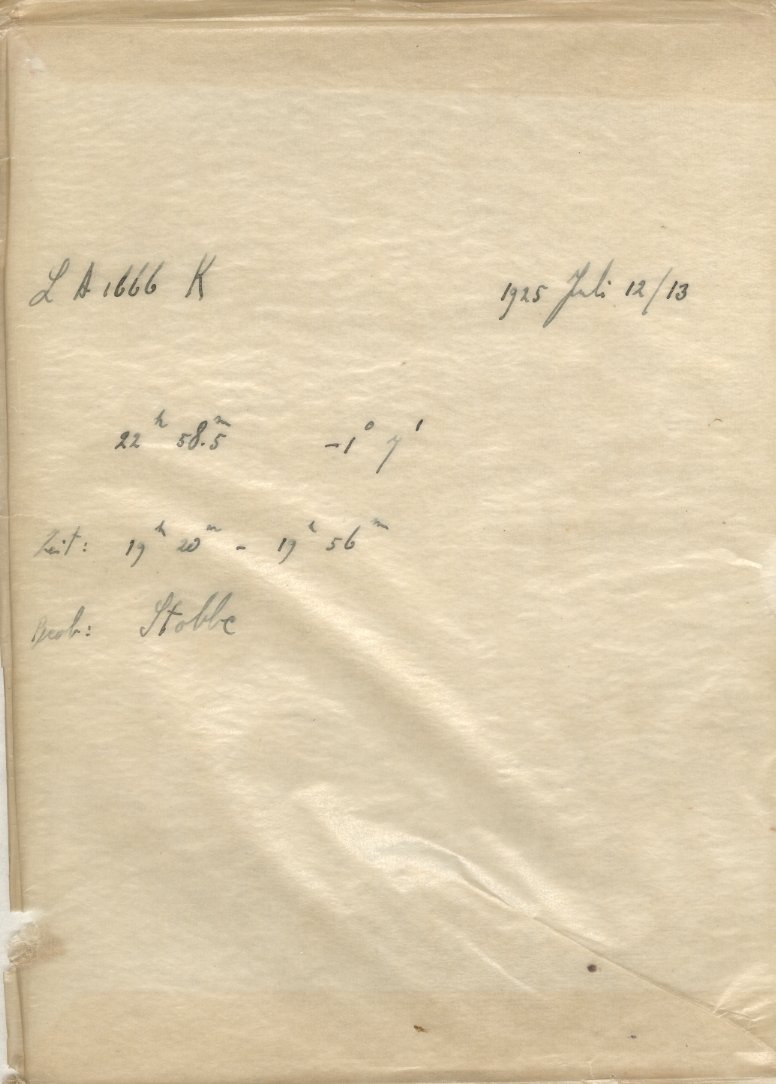 L A 1666 K 1925 Juli 12/13
22ʰ 58.5ᵐ -1° 7'
Zeit: 19ʰ 20ᵐ - 19ʰ 56ᵐ
Beob: Stobbe